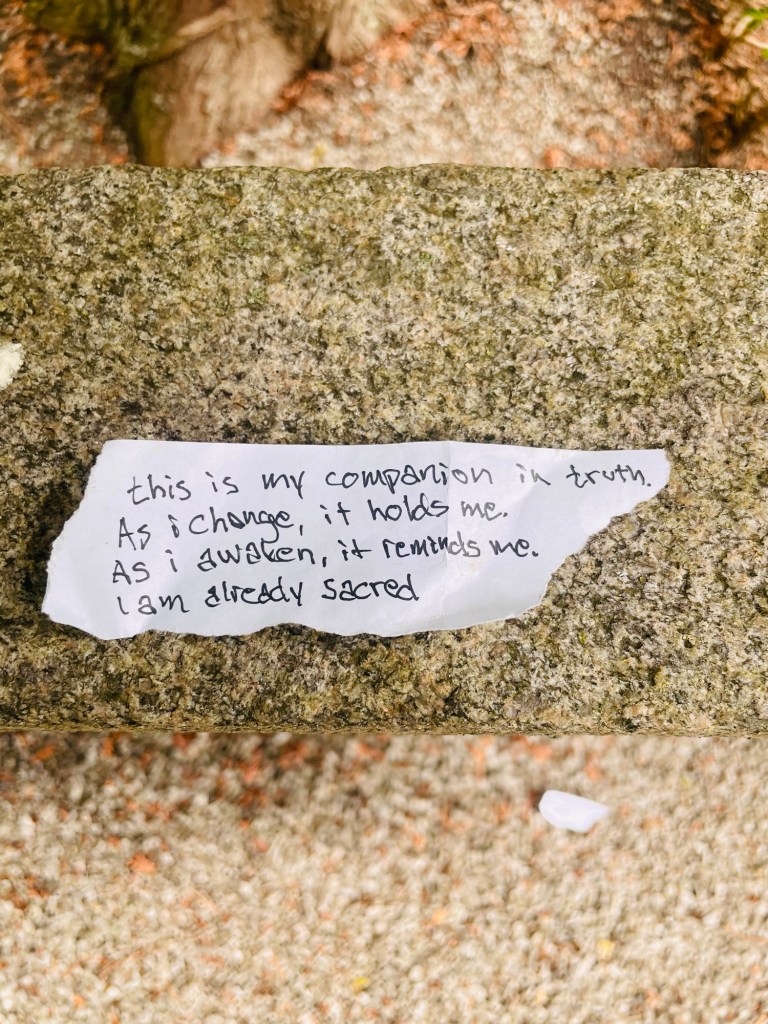 this is my companion in truth.
As i change, it holds me.
As i awaken, it reminds me.
i am already sacred